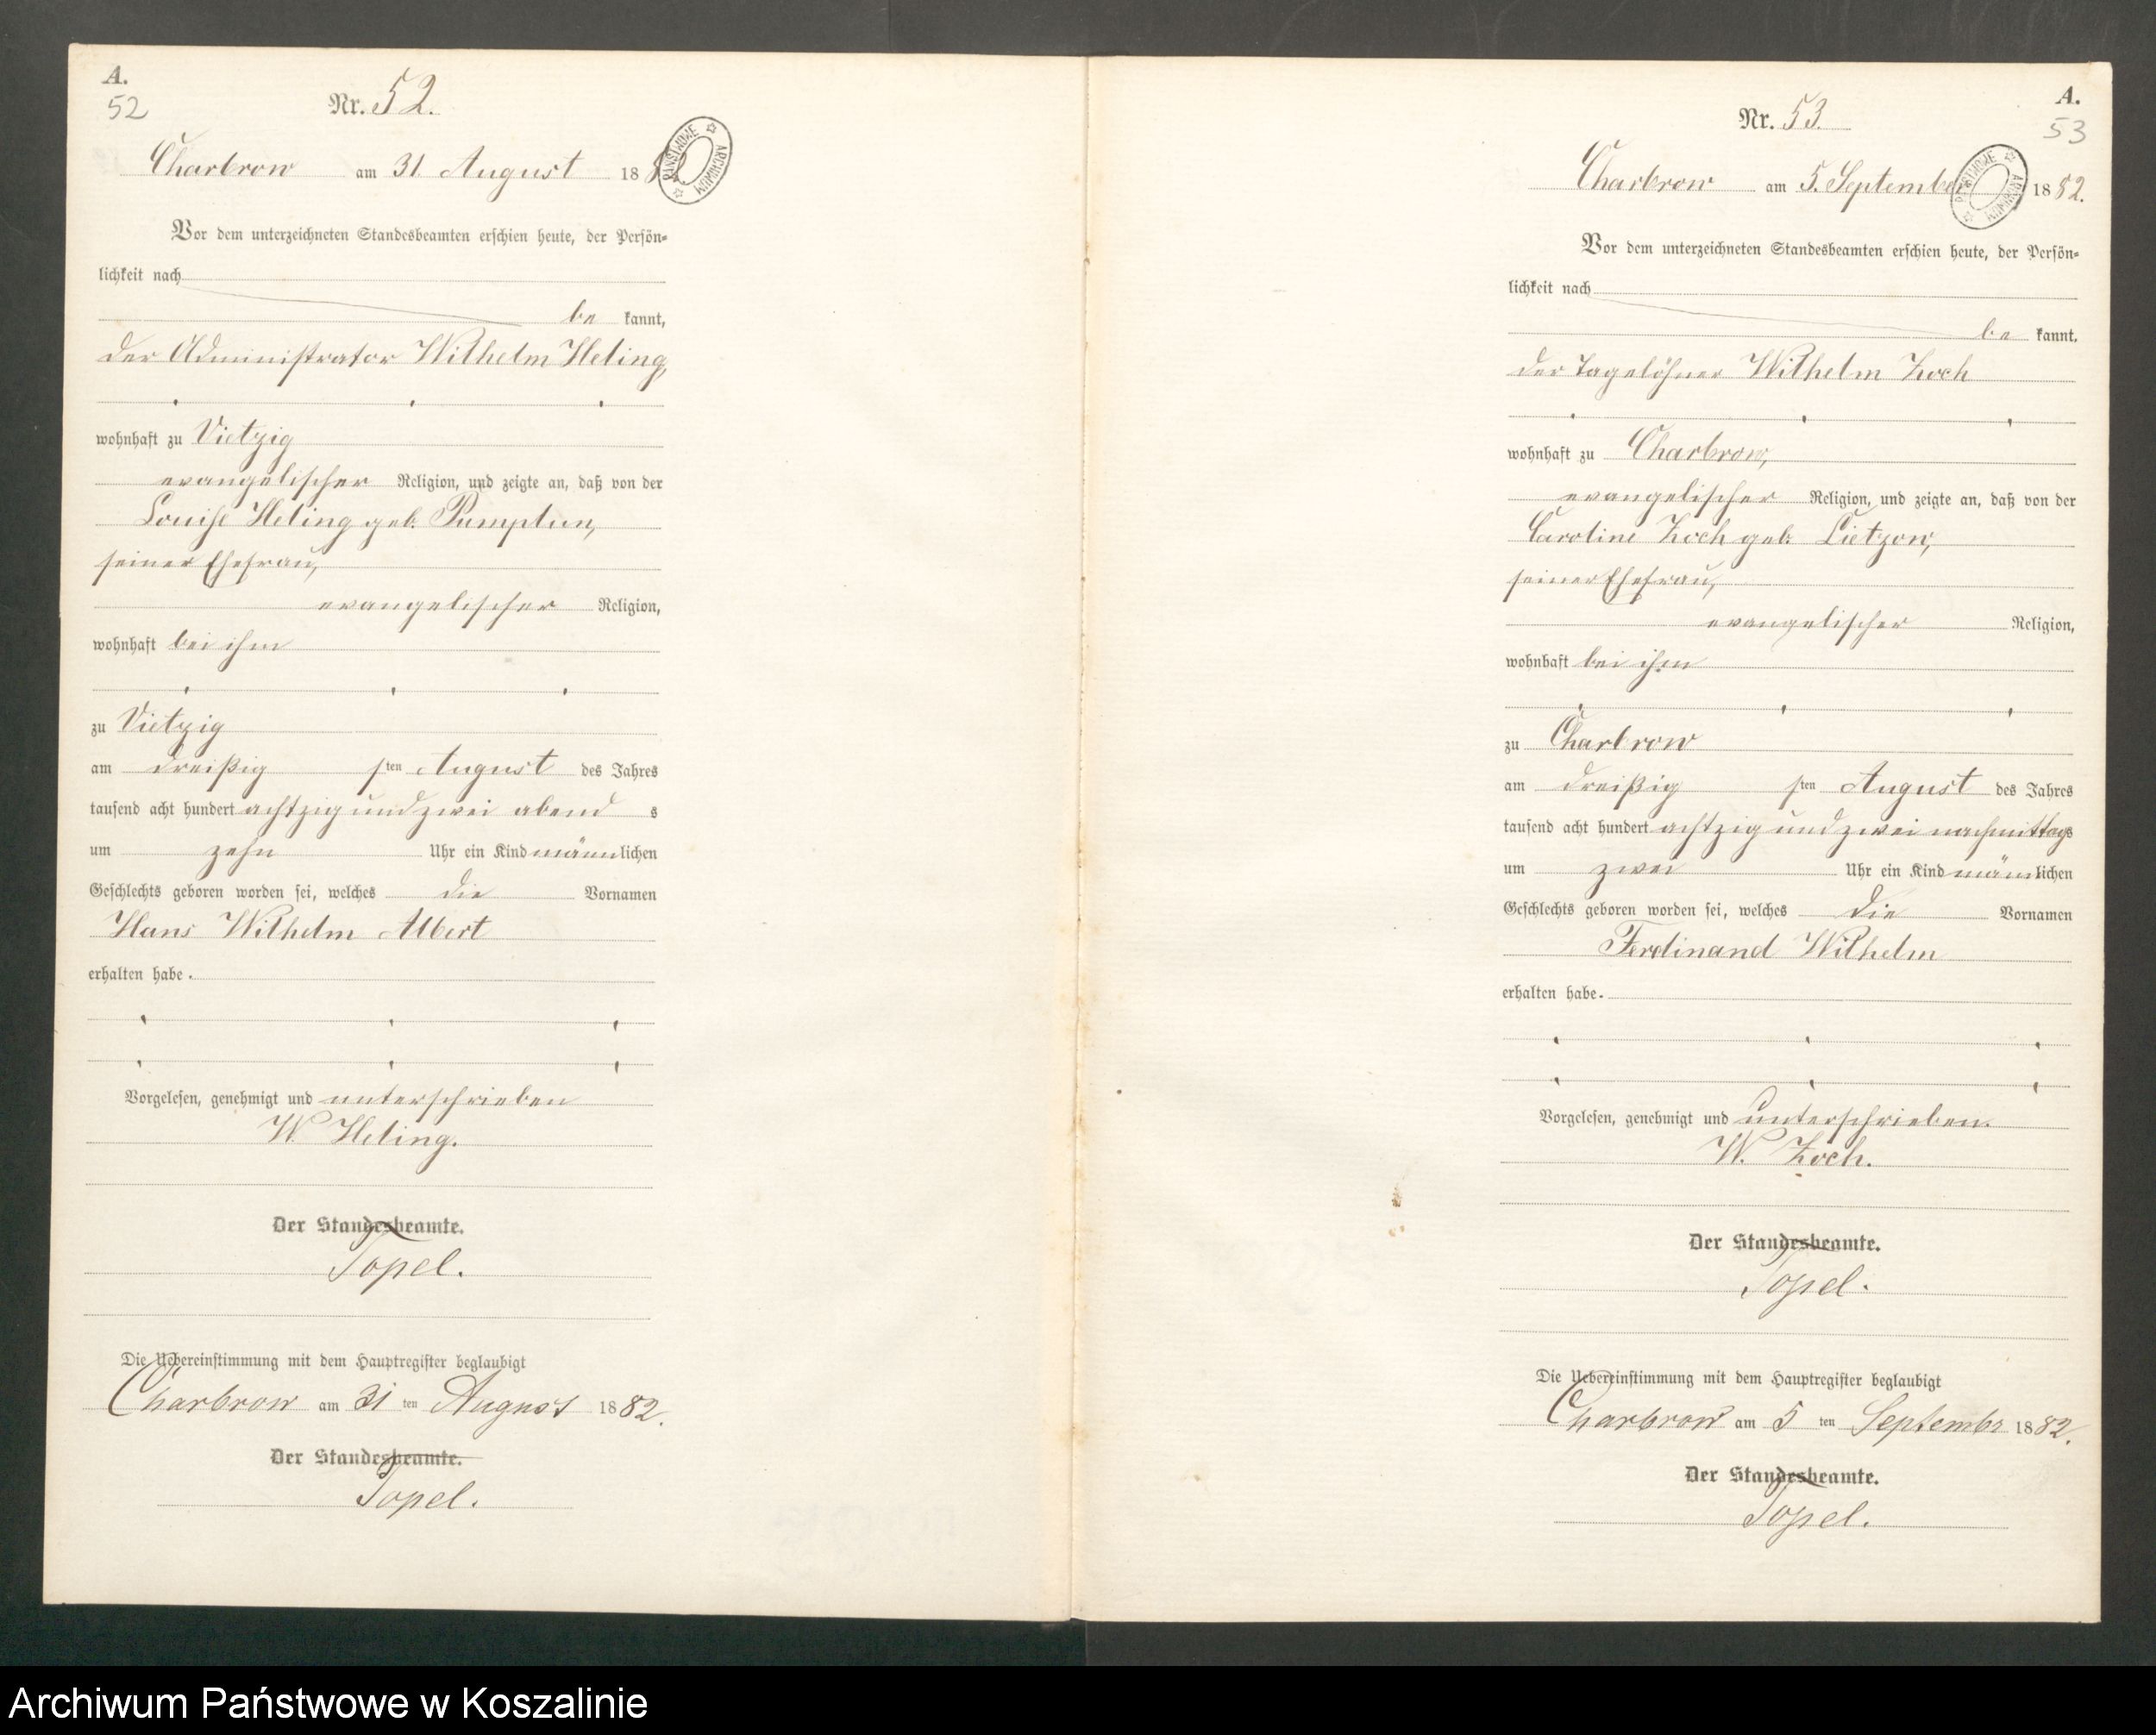 A.
52
Nr. 52.
PAŃSTWOWE ARCHIWUM
Charbrow am 31. August 1882
Vor dem unterzeichneten Standesbeamten erschien heute, der Persön-
lichkeit nach
be kannt,
der Administrator Wilhelm Heling,
wohnhaft zu Vietzig
evangelischer Religion, und zeigte an, daß von der
Louise Heling geb. Pumptun,
seiner Ehefrau,
evangelischer Religion,
wohnhaft bei ihm
zu Vietzig
am dreißig sten August des Jahres
tausend acht hundert achtzig und zwei abend s
um zehn Uhr ein Kind männlichen
Geschlechts geboren worden sei, welches die Vornamen
Hans Wilhelm Albert
erhalten habe.
Vorgelesen, genehmigt und unterschrieben
W. Heling.
Der Standesbeamte.
Topel.
Die Uebereinstimmung mit dem Hauptregister beglaubigt
Charbrow am 31 ten August 1882.
Der Standesbeamte.
Topel.
A.
53
Nr. 53.
PAŃSTWOWE ARCHIWUM
Charbrow am 5. September 1882.
Vor dem unterzeichneten Standesbeamten erschien heute, der Persön-
lichkeit nach
be kannt,
der Tagelöhner Wilhelm Koch
wohnhaft zu Charbrow,
evangelischer Religion, und zeigte an, daß von der
Caroline Koch geb. Lietzow,
seiner Ehefrau,
evangelischer Religion,
wohnhaft bei ihm
zu Charbrow
am dreißig sten August des Jahres
tausend acht hundert achtzig und zwei nachmittags
um zwei Uhr ein Kind männlichen
Geschlechts geboren worden sei, welches die Vornamen
Ferdinand Wilhelm
erhalten habe.
Vorgelesen, genehmigt und unterschrieben.
W. Koch.
Der Standesbeamte.
Topel.
Die Uebereinstimmung mit dem Hauptregister beglaubigt
Charbrow am 5 ten Septembr 1882.
Der Standesbeamte.
Topel.
Archiwum Państwowe w Koszalinie